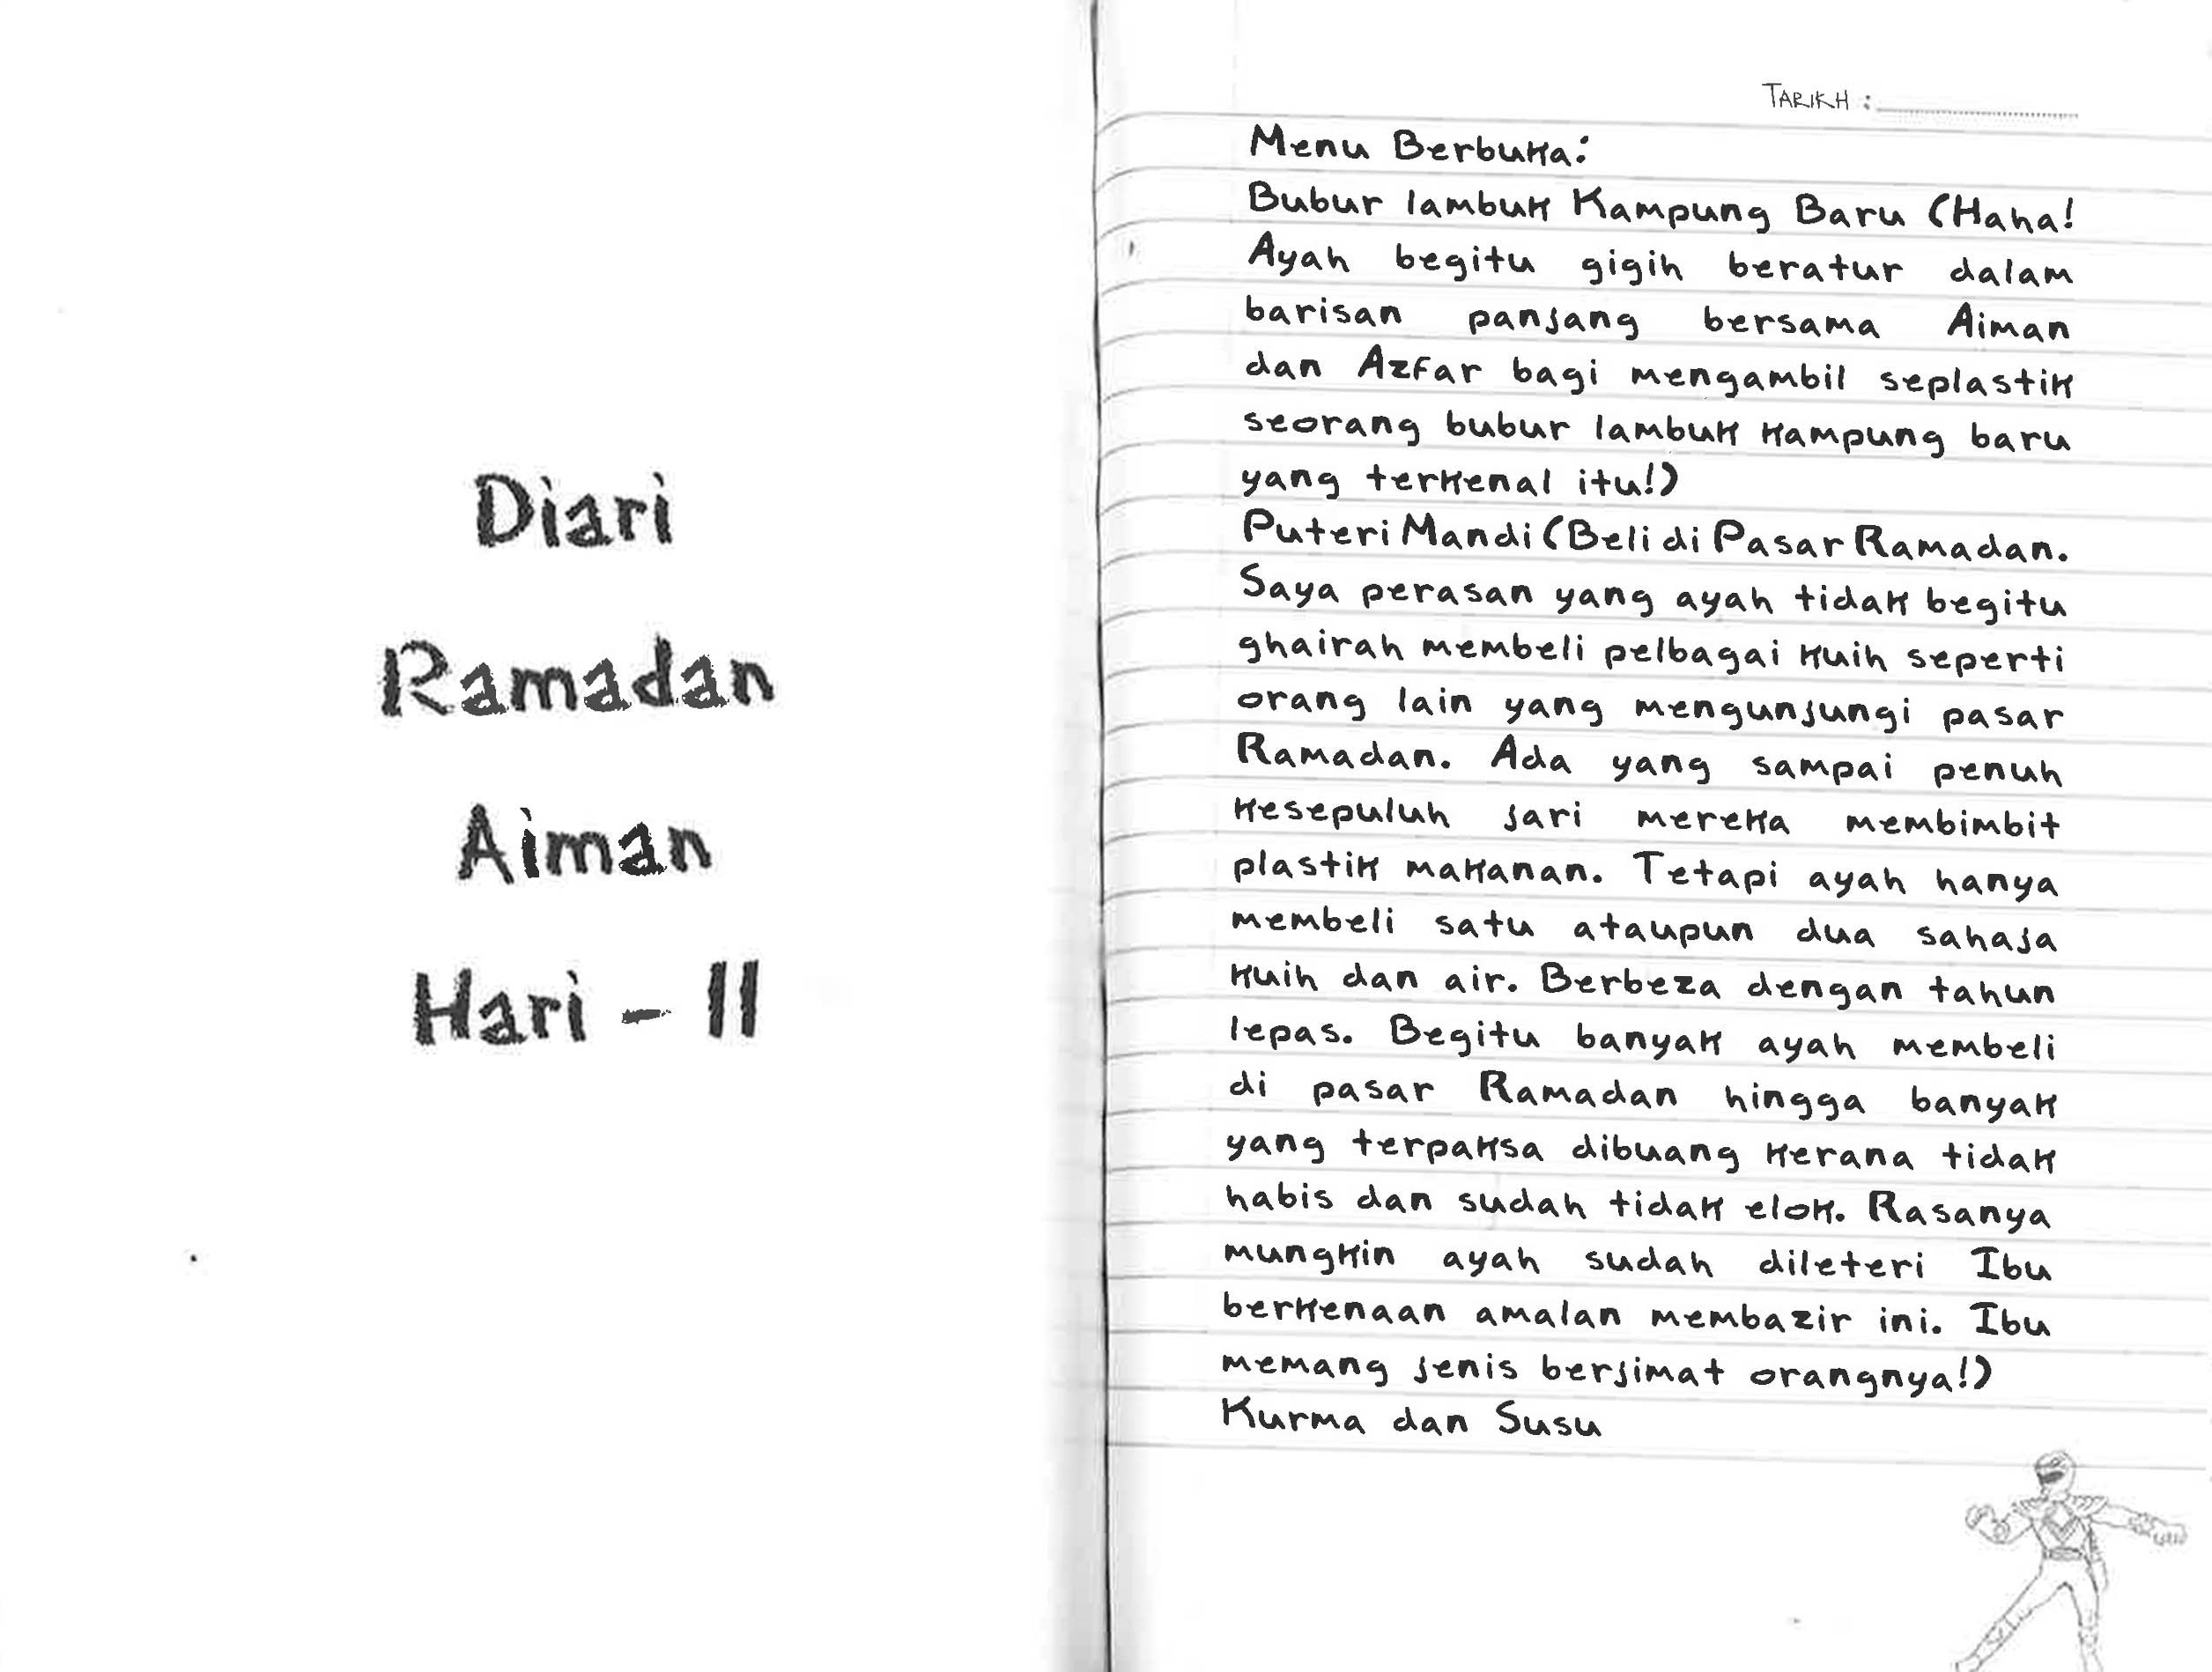 Diari
Ramadan
Aiman
Hari - 11
TARIKH :
Menu Berbuka:
Bubur lambuk Kampung Baru (Haha!
Ayah begitu gigih beratur dalam
barisan panjang bersama Aiman
dan Azfar bagi mengambil seplastik
seorang bubur lambuk kampung baru
yang terkenal itu!)
Puteri Mandi (Beli di Pasar Ramadan.
Saya perasan yang ayah tidak begitu
ghairah membeli pelbagai kuih seperti
orang lain yang mengunjungi pasar
Ramadan. Ada yang sampai penuh
kesepuluh jari mereka membimbit
plastik makanan. Tetapi ayah hanya
membeli satu ataupun dua sahaja
kuih dan air. Berbeza dengan tahun
lepas. Begitu banyak ayah membeli
di pasar Ramadan hingga banyak
yang terpaksa dibuang kerana tidak
habis dan sudah tidak elok. Rasanya
mungkin ayah sudah dileteri Ibu
berkenaan amalan membazir ini. Ibu
memang jenis berjimat orangnya!)
Kurma dan Susu